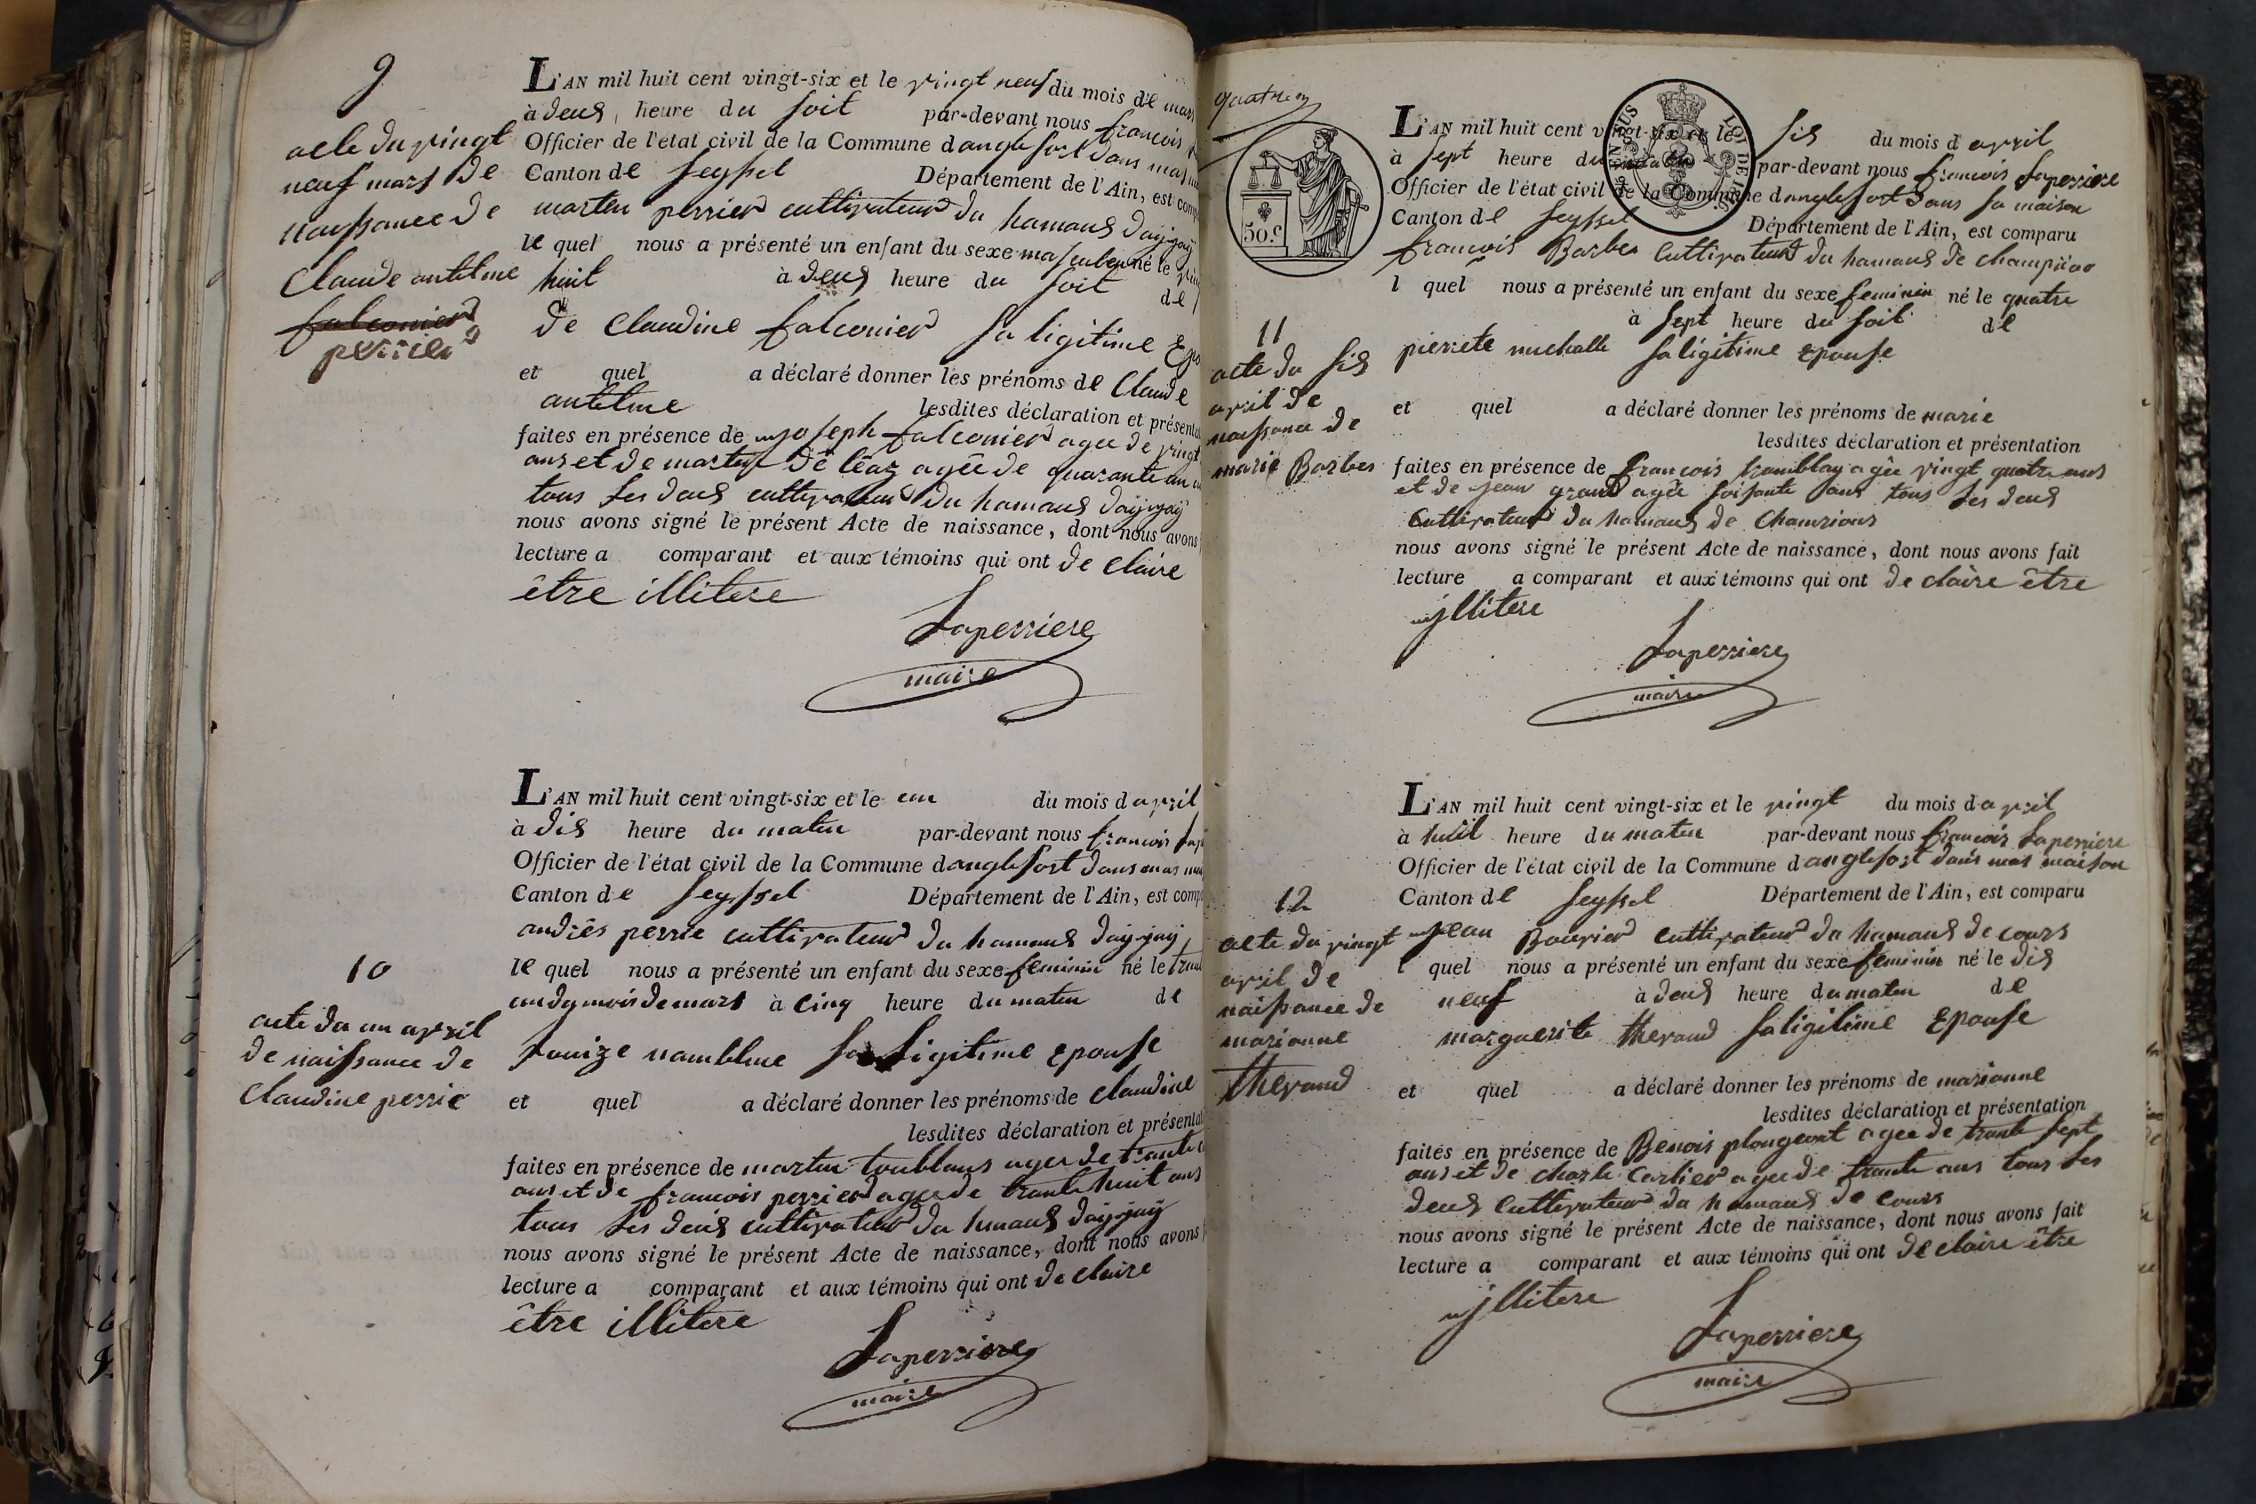 9
acte du vingt
neuf mars de
naissance de
Claude antelme
falconier
perrier
L'AN mil huit cent vingt-six et le vingt neuf du mois de mars
à deus heure du soit par-devant nous francois
Officier de l'état civil de la Commune d anglefort dans mas
Canton de Seyssel Département de l'Ain, est comp
martin perrier cultivateur du hamaus
le quel nous a présenté un enfant du sexe masculen né le
huit à deus heure du soit de
de Claudine falconier sa ligitime Epo
et quel a déclaré donner les prénoms de Claude
antelme lesdites déclaration et présenta
faites en présence de joseph falconier agee de vingt
ans et de martin de léaz agée de quarante un
tous les deus cultivateur du hamaus
nous avons signé le présent Acte de naissance, dont nous avons
lecture a comparant et aux témoins qui ont de claire
être illitere
Laperriere
maire
10
acte du un april
de naissance de
Claudine perrie
L'AN mil huit cent vingt-six et le un du mois d april
à dis heure du maten par-devant nous francois
Officier de l'état civil de la Commune d anglefort dans mas
Canton de Seyssel Département de l'Ain, est comp
andrés perrie cultivateur du hamaus
le quel nous a présenté un enfant du sexe feminin né le
un du mois de mars à cinq heure du maten de
Louize sa ligitime epouse
et quel a déclaré donner les prénoms de claudine
lesdites déclaration et présenta
faites en présence de martin agee de trante
ans et de francois perrier agee de trante huit ans
tous les deus cultivateur du
nous avons signé le présent Acte de naissance, dont nous avons
lecture a comparant et aux témoins qui ont de claire
être illitere
Laperriere
maire
50 c.
LOI DE
11
acte du sis
april de
naissance de
marie Barbes
L'AN mil huit cent vingt-six et le sis du mois d april
à sept heure du par-devant nous francois Laperriere
Officier de l'état civil de la Commune d anglefort dans sa maison
Canton de Seyssel Département de l'Ain, est comparu
francois Barbes cultivateur du hamaus de
l quel nous a présenté un enfant du sexe feminin né le quatre
à sept heure du soit de
pierrete sa ligitime epouse
et quel a déclaré donner les prénoms de marie
lesdites déclaration et présentation
faites en présence de francois agée vingt quatre ans
et de jean grand agée soisante ans tous les deus
Cultivateur du hamaus de
nous avons signé le présent Acte de naissance, dont nous avons fait
lecture a comparant et aux témoins qui ont de claire être
jllitere
Laperriere
maire
12
acte du vingt
april de
naissance de
marianne
therand
L'AN mil huit cent vingt-six et le vingt du mois d april
à huit heure du maten par-devant nous francois Laperriere
Officier de l'état civil de la Commune d anglefort dans mas maison
Canton de Seyssel Département de l'Ain, est comparu
jean cultivateur du hamaus de cours
l quel nous a présenté un enfant du sexe feminin né le dis
neuf à deus heure du maten de
marguerite therand sa ligitime Epouse
et quel a déclaré donner les prénoms de marianne
lesdites déclaration et présentation
faites en présence de Benois agee de trante sept
ans et de charle Carlier agee de trante ans tous les
deus cultivateur du hamaus de cours
nous avons signé le présent Acte de naissance, dont nous avons fait
lecture a comparant et aux témoins qui ont de claire être
jllitere
Laperriere
maire